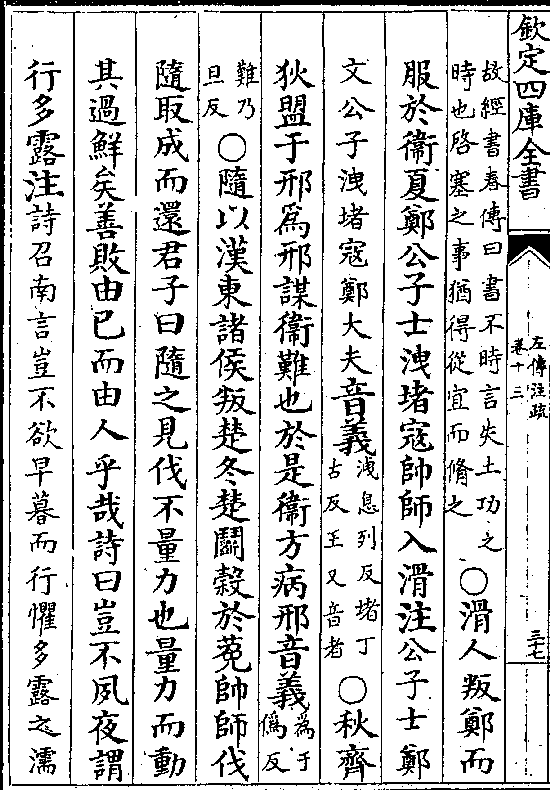 欽定四庫全書
左傳注疏
卷十三
三十七
故經書春傳曰書不時言失土功之
時也啓塞之事猶得從宜而脩之
○滑人叛鄭而
服於衞夏鄭公子士洩堵寇帥師入滑注公子士鄭
文公子洩堵寇鄭大夫音義
洩息列反堵丁
古反王又音者
○秋齊
狄盟于邢爲邢謀衞難也於是衞方病邢音義
爲于
僞反
難乃
旦反
○隨以漢東諸侯叛楚冬楚鬭穀於菟帥師伐
隨取成而還君子曰隨之見伐不量力也量力而動
其過鮮矣善敗由己而由人乎哉詩曰豈不夙夜謂
行多露注詩召南言豈不欲早暮而行懼多露之濡